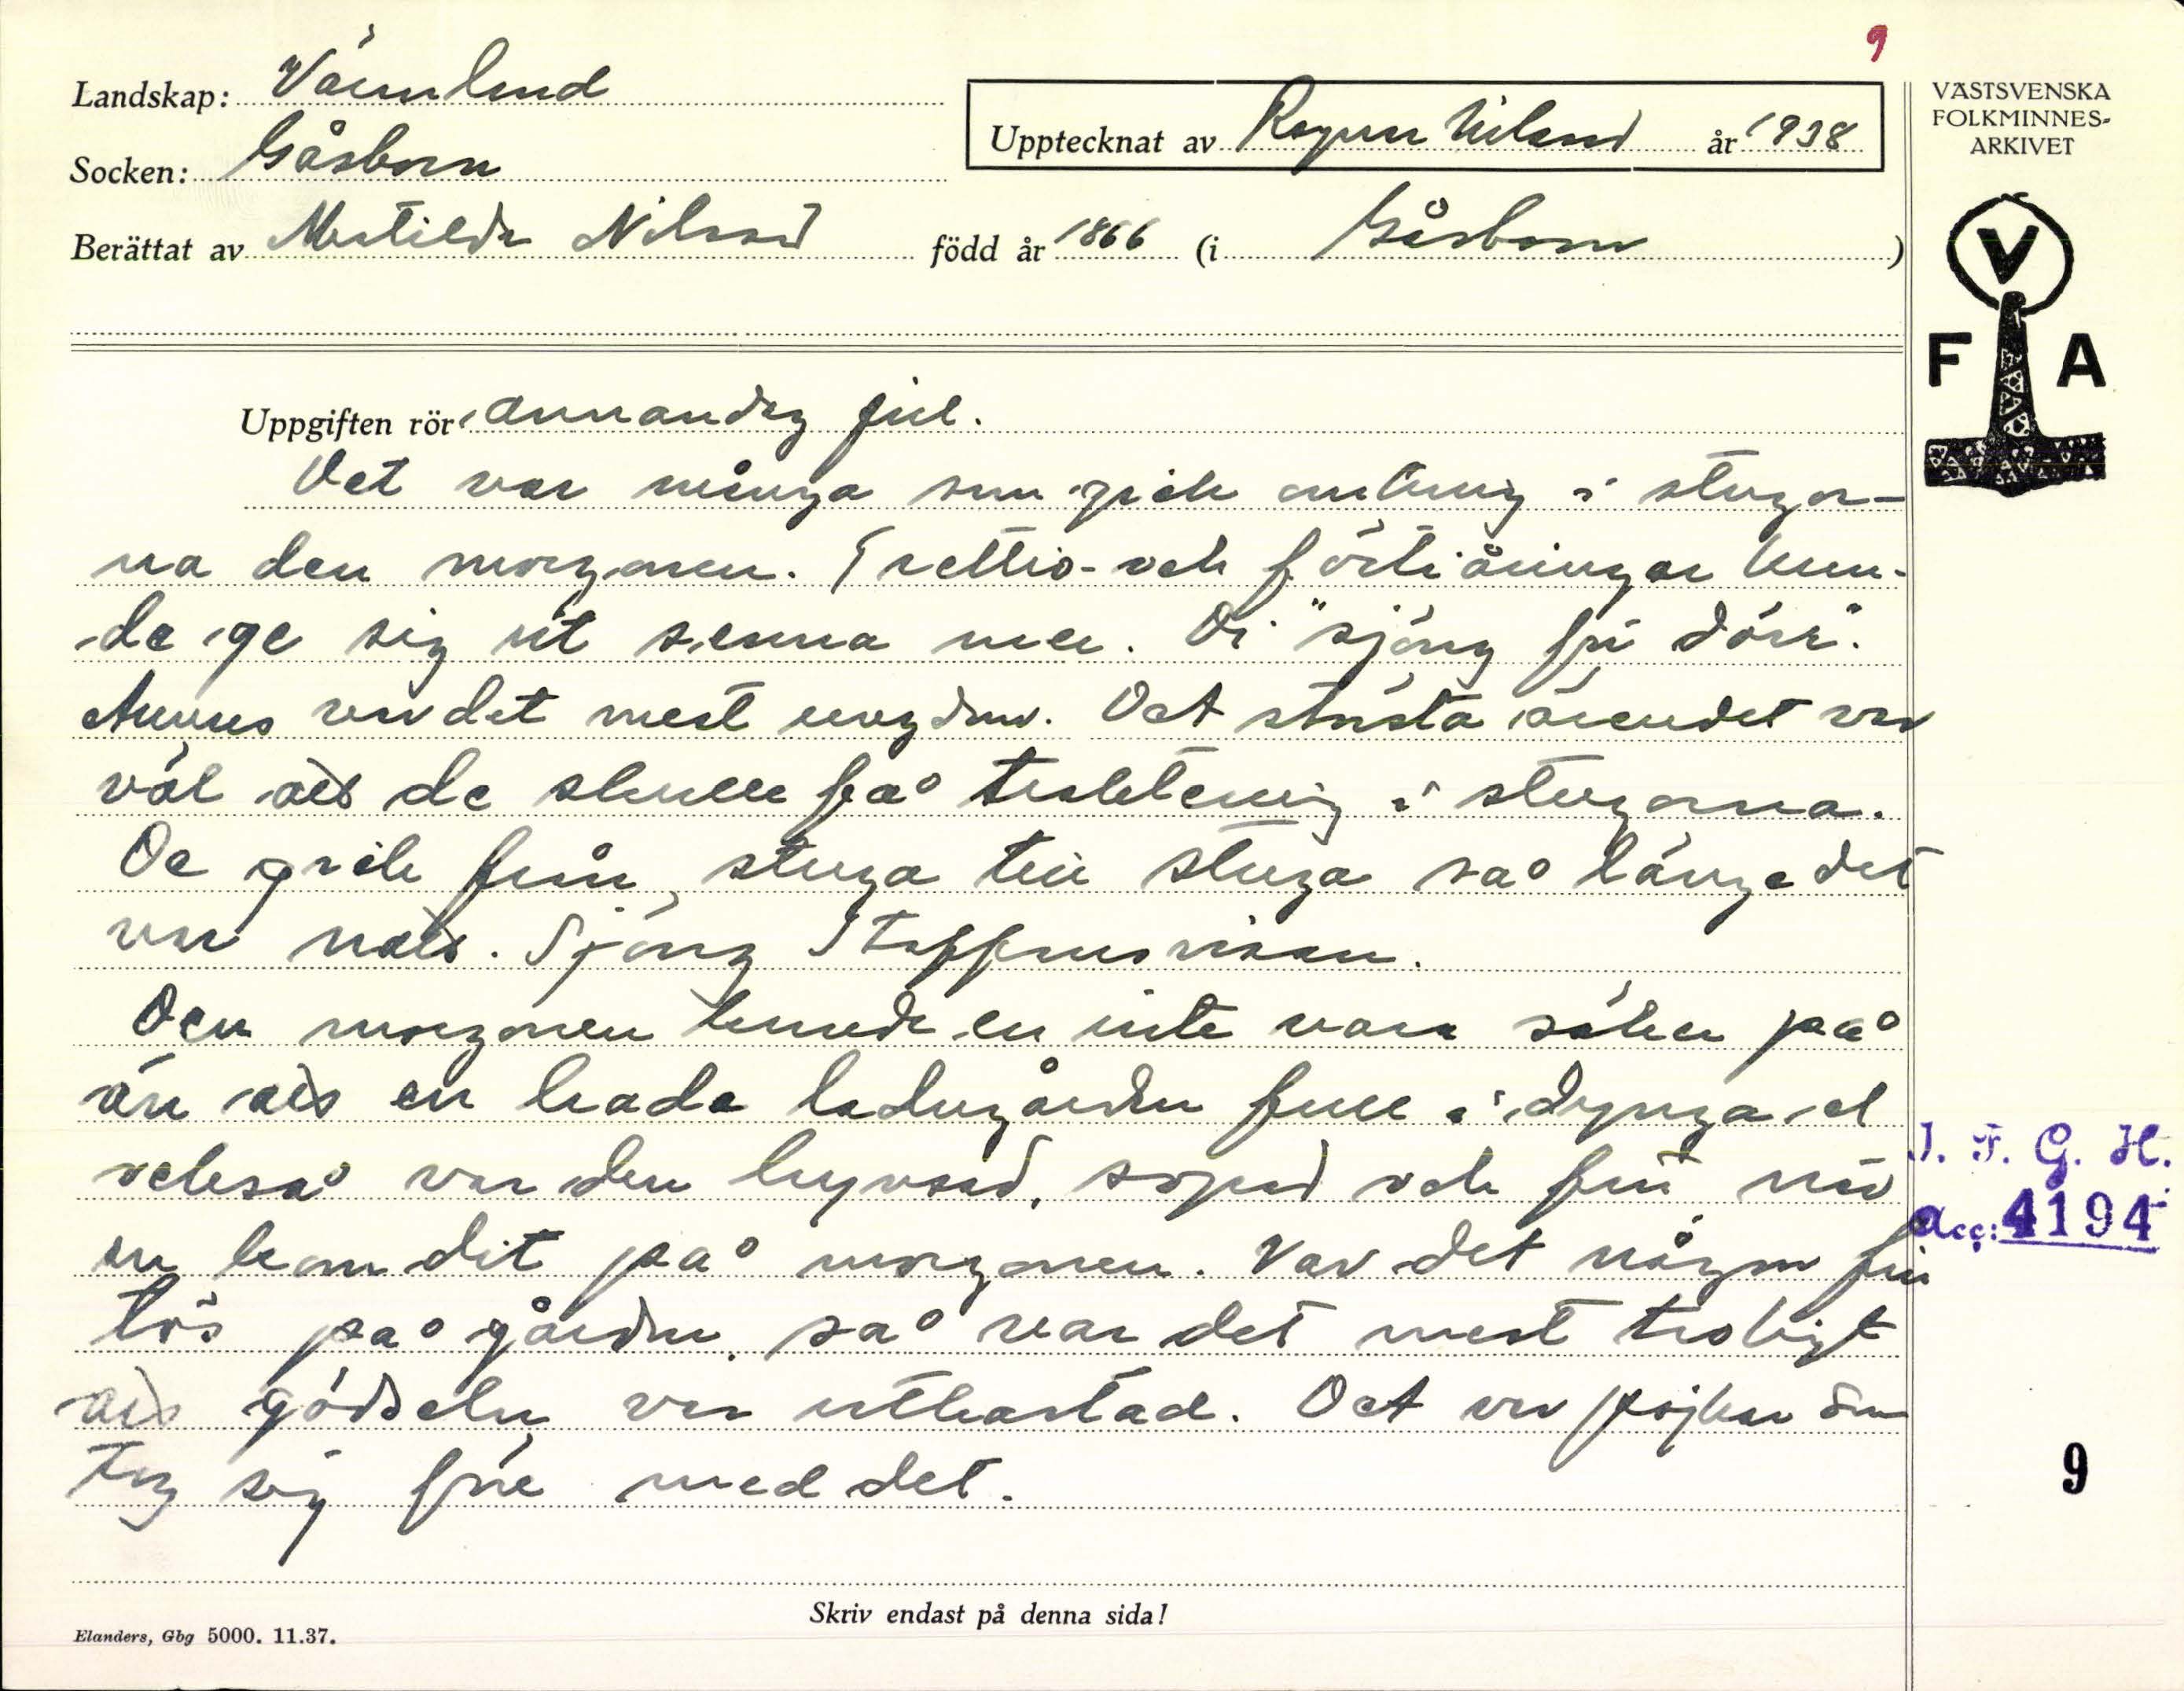 9
Landskap: Värmland
Socken: Gåsborn
Upptecknat av Ragnar Nilsson år 1938
Berättat av Matilda Nilsson född år 1866 (i Gåsborn)
VÄSTSVENSKA
FOLKMINNES-
ARKIVET
V
F A
Uppgiften rör annandag jul.
Det var många som gick omkring i stugor-
na den morgonen. Trettio- och förtiåringar kun-
de ge sig ut denna mer. Di "sjöng för dörr".
Annars var det mest ungdom. Det största ärendet var
väl att de skulle få traktering i stugorna.
De gick från stuga till stuga så länge det
var natt. Sjöng Staffansvisan.
Den morgonen kunde en inte vara säker på
än att en hade ladugården full i dynga el
också var den kryssad, sopad och fin när
en kom dit på morgonen. Var det någon fin
tös på gården så var det mest troligt
att gödseln var utkastad. Det var pojkar som
tog sig för med det.
I. F. G. H.
Acc: 4194
9
Skriv endast på denna sida!
Elanders, Gbg 5000. 11.37.